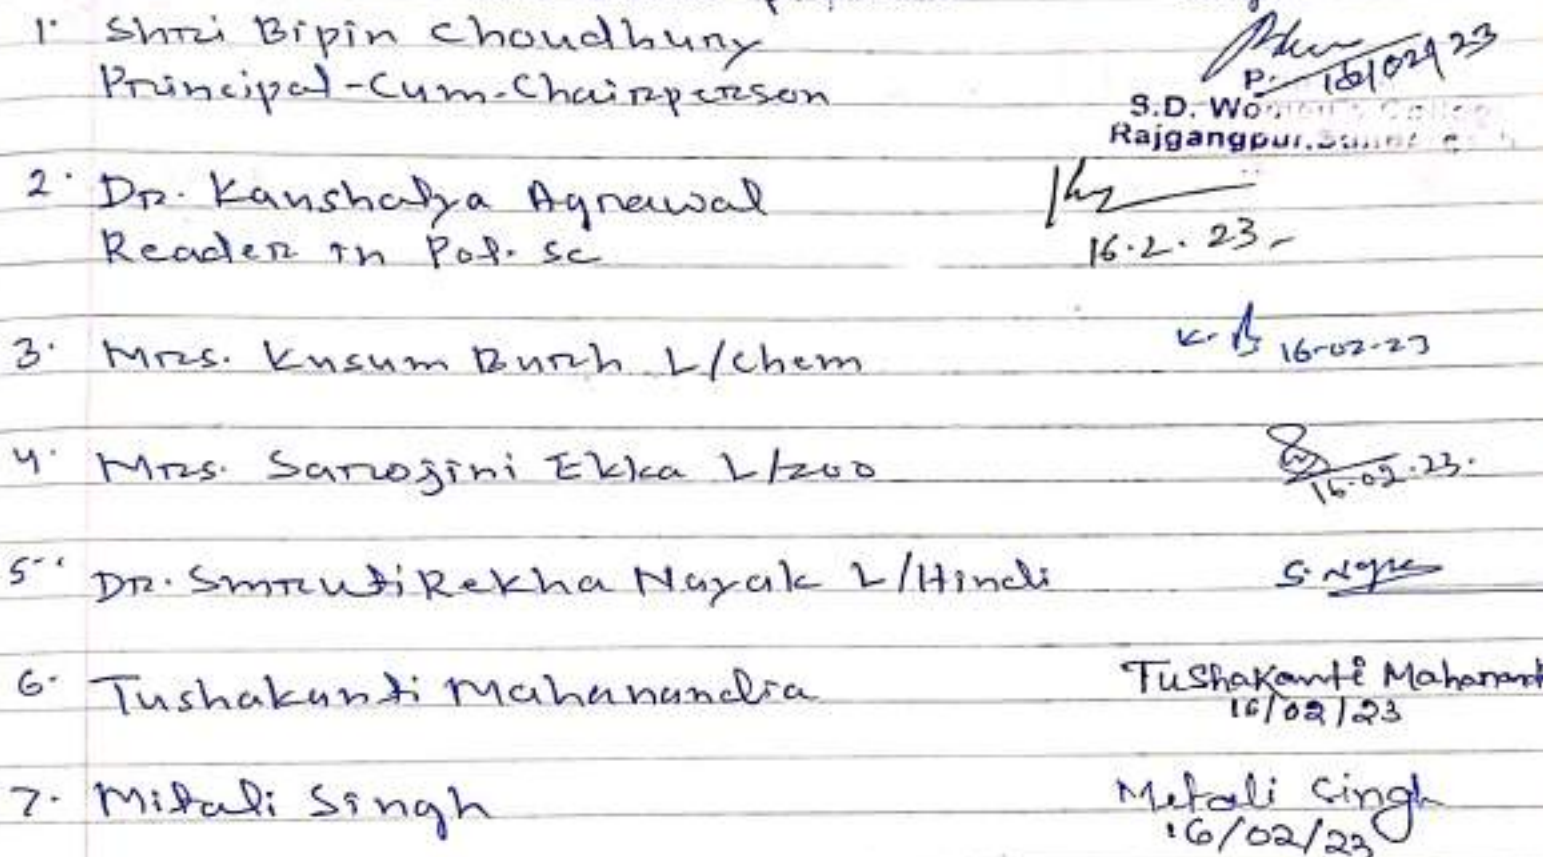 1. Shri Bipin Choudhury
Principal-Cum-Chairperson
P. 16/02/23
S.D. Women's College
Rajgangpur,
2. Dr. Kaushalya Agrawal
Reader in Pol. Sc
16.2.23
3. Mrs. Kusum Burh L/Chem
K. B 16-02-23
4. Mrs. Sarojini Ekka L/zoo
16.02.23.
5. Dr. Smruti Rekha Nayak L/Hindi
S. Nayak
6. Tushakanti Mahanandia
Tushakanti Mahanand
16/02/23
7. Mitali Singh
Mitali Singh
16/02/23